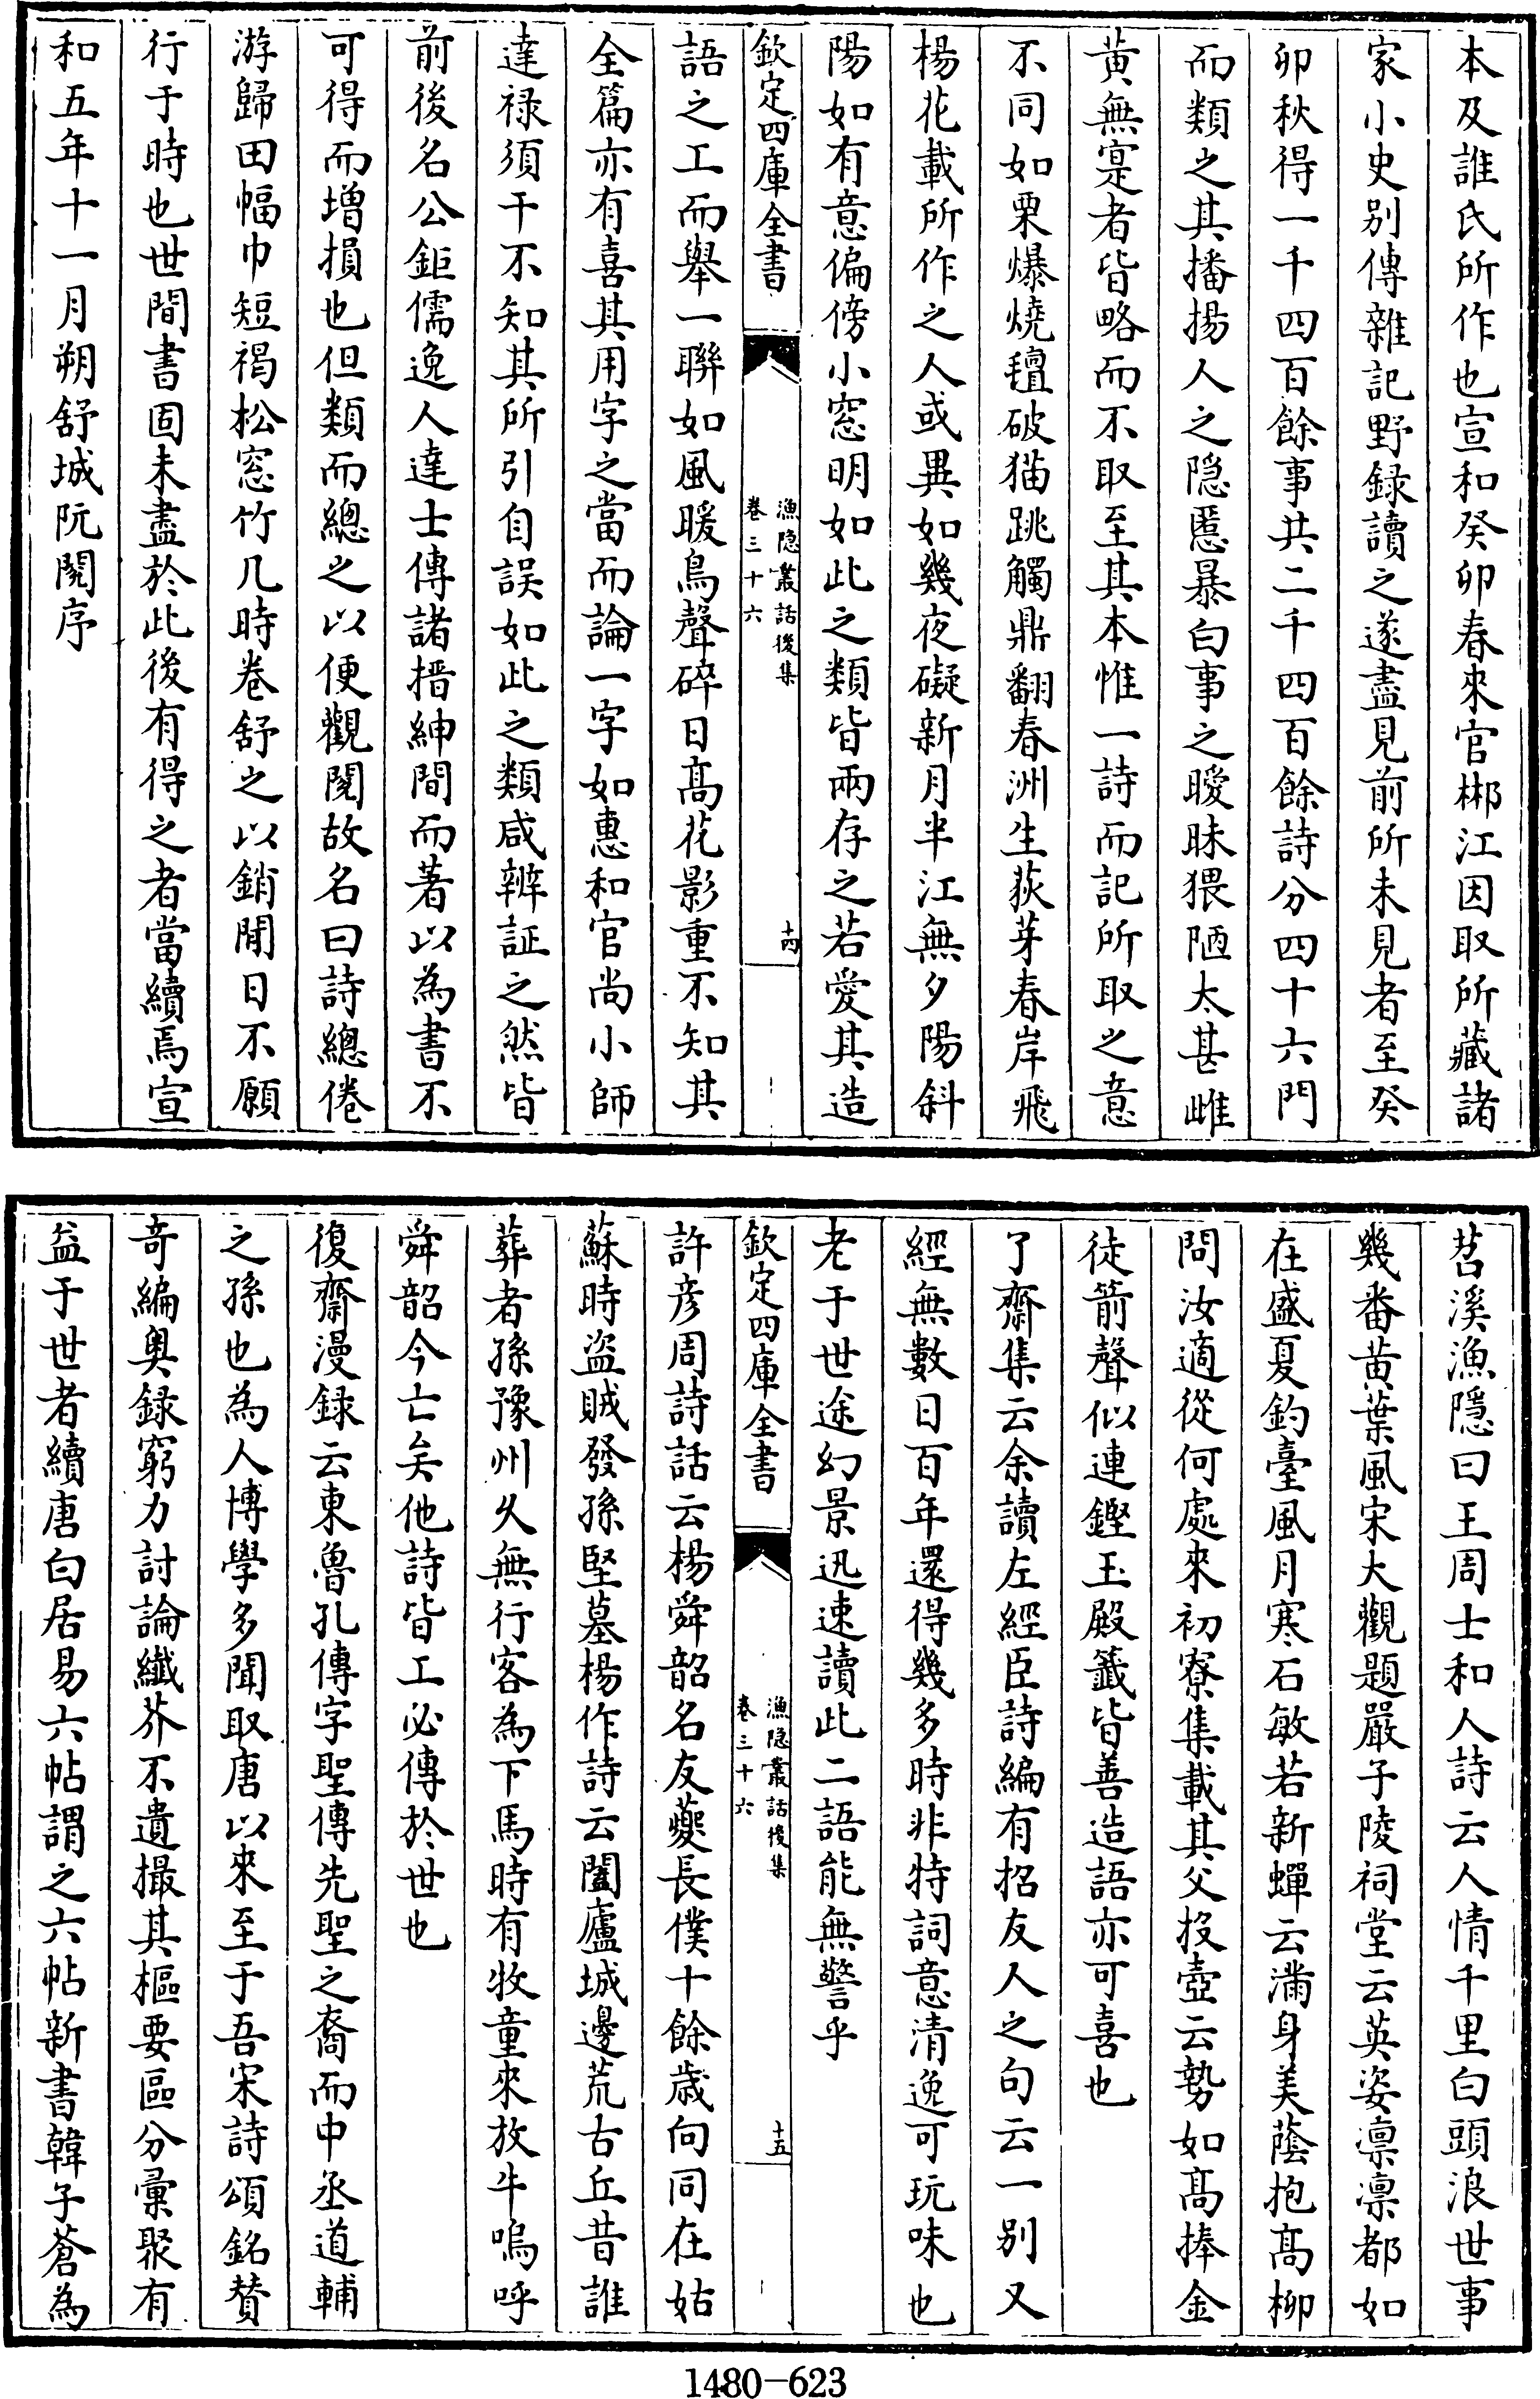 本及誰氏所作也宣和癸卯春來官郴江因取所藏諸
家小史别傳雜記野録讀之遂盡見前所未見者至癸
卯秋得一千四百餘事共二千四百餘詩分四十六門
而類之其播揚人之隠慝暴白事之曖昧猥陋太甚雌
黄無寔者皆略而不取至其本惟一詩而記所取之意
不同如栗爆燒氊破猫跳觸鼎翻春洲生荻芽春岸飛
楊花載所作之人或異如幾夜礙新月半江無夕陽斜
陽如有意偏傍小窓明如此之類皆兩存之若愛其造
欽定四庫全書
漁隠叢話後集
卷三十六
十四
語之工而舉一聯如風暖鳥聲碎日髙花影重不知其
全篇亦有喜其用字之當而論一字如惠和官尚小師
達禄須干不知其所引自誤如此之類咸辨証之然皆
前後名公鉅儒逸人達士傳諸搢紳間而著以為書不
可得而增損也但類而總之以便觀閱故名曰詩總倦
游歸田幅巾短褐松窓竹几時卷舒之以銷閒日不願
行于時也世間書固未盡於此後有得之者當續焉宣
和五年十一月朔舒城阮閱序
苕溪漁隱曰王周士和人詩云人情千里白頭浪世事
幾番黄葉風宋大觀題嚴子陵祠堂云英姿凛凛都如
在盛夏釣臺風月寒石敏若新蟬云滿身美蔭抱髙柳
問汝適從何處來初寮集載其父投壺云勢如髙捧金
徒箭聲似連鏗玉殿籤皆善造語亦可喜也
了齋集云余讀左經臣詩編有招友人之句云一别又
經無數日百年還得幾多時非特詞意清逸可玩味也
老于世途幻景迅速讀此二語能無警乎
欽定四庫全書
漁隠叢話後集
卷三十六
十五
許彦周詩話云楊舜韶名友夔長僕十餘歳向同在姑
蘇時盜賊發孫堅墓楊作詩云闔廬城邊荒古丘昔誰
葬者孫豫州久無行客為下馬時有牧童來放牛嗚呼
舜韶今亡矣他詩皆工必傳於世也
復齋漫録云東魯孔傳字聖傳先聖之裔而中丞道輔
之孫也為人博學多聞取唐以來至于吾宋詩頌銘賛
竒編奥録窮力討論纖芥不遺撮其樞要區分彚聚有
益于世者續唐白居易六帖謂之六帖新書韓子蒼為
1480-623